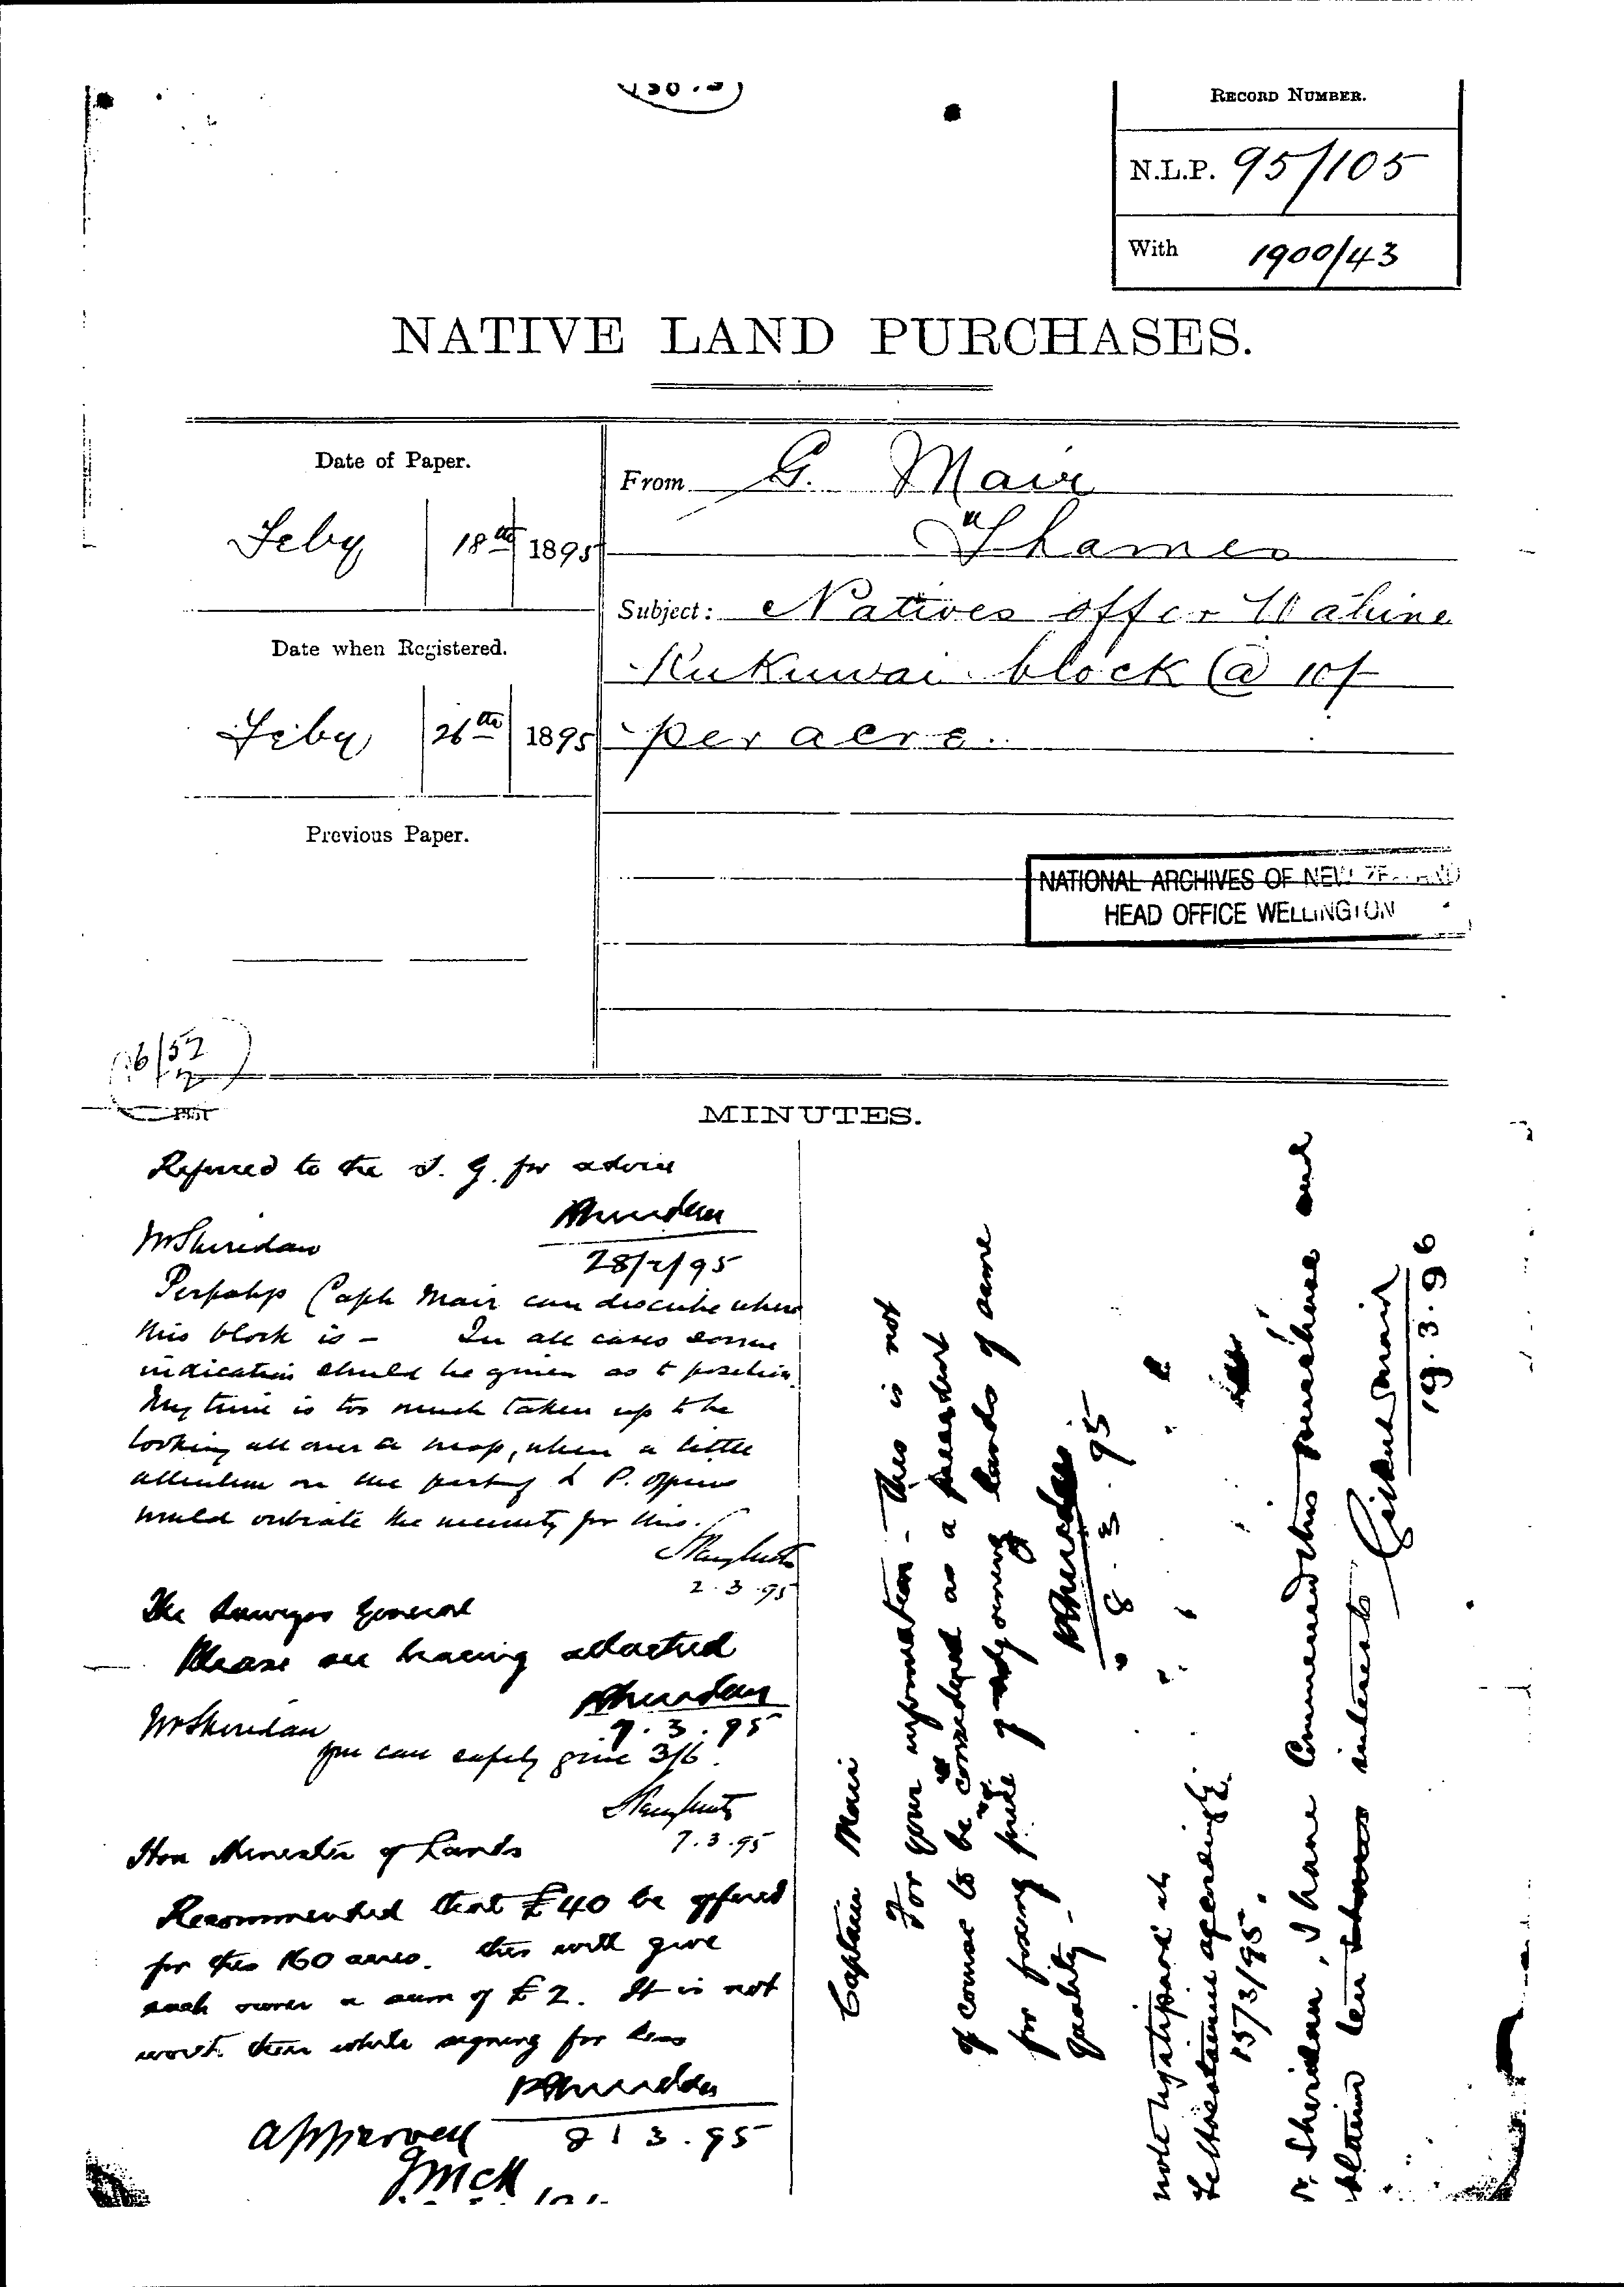 RECORD NUMBER.
N.L.P. 95/105
With 1900/43
NATIVE LAND PURCHASES.
Date of Paper.
Feby 18th 1895
Date when Registered.
Feby 26th 1895
Previous Paper.
From G. Mair
Thames
Subject: Natives offer Wahine
Kukuwai block @ 10/-
per acre.
NATIONAL ARCHIVES OF NEW ZEALAND
HEAD OFFICE WELLINGTON
MINUTES.
Referred to the S. G. for advice
28/2/95
Mr Sheridan
Perhaps Capt Mair can describe where
this block is - In all cases some
indication should be given as to position.
My time is too much taken up to be
looking all over a map, when a little
attention on the part of L P. officers
would obviate the necessity for this.
2.3.95
The Surveyor General
Please see tracing attached
7.3.95
Mr Sheridan
you can safely give 3/6.
7.3.95
Hon Minister of Lands
Recommended that £40 be offered
for this 160 acres. this will give
each owner a sum of £2. It is not
worth their while signing for less
8/3.95
Approved
JMcK
Captain Mair
For your information - This is not
of course to be considered as a precedent
for fixing price of adjoining lands of same
quality -
8.3.95
15/3/95.
Mr. Sheridan, I have commenced this purchase and
obtained ten interests
Gilbert Mair
19.3.96